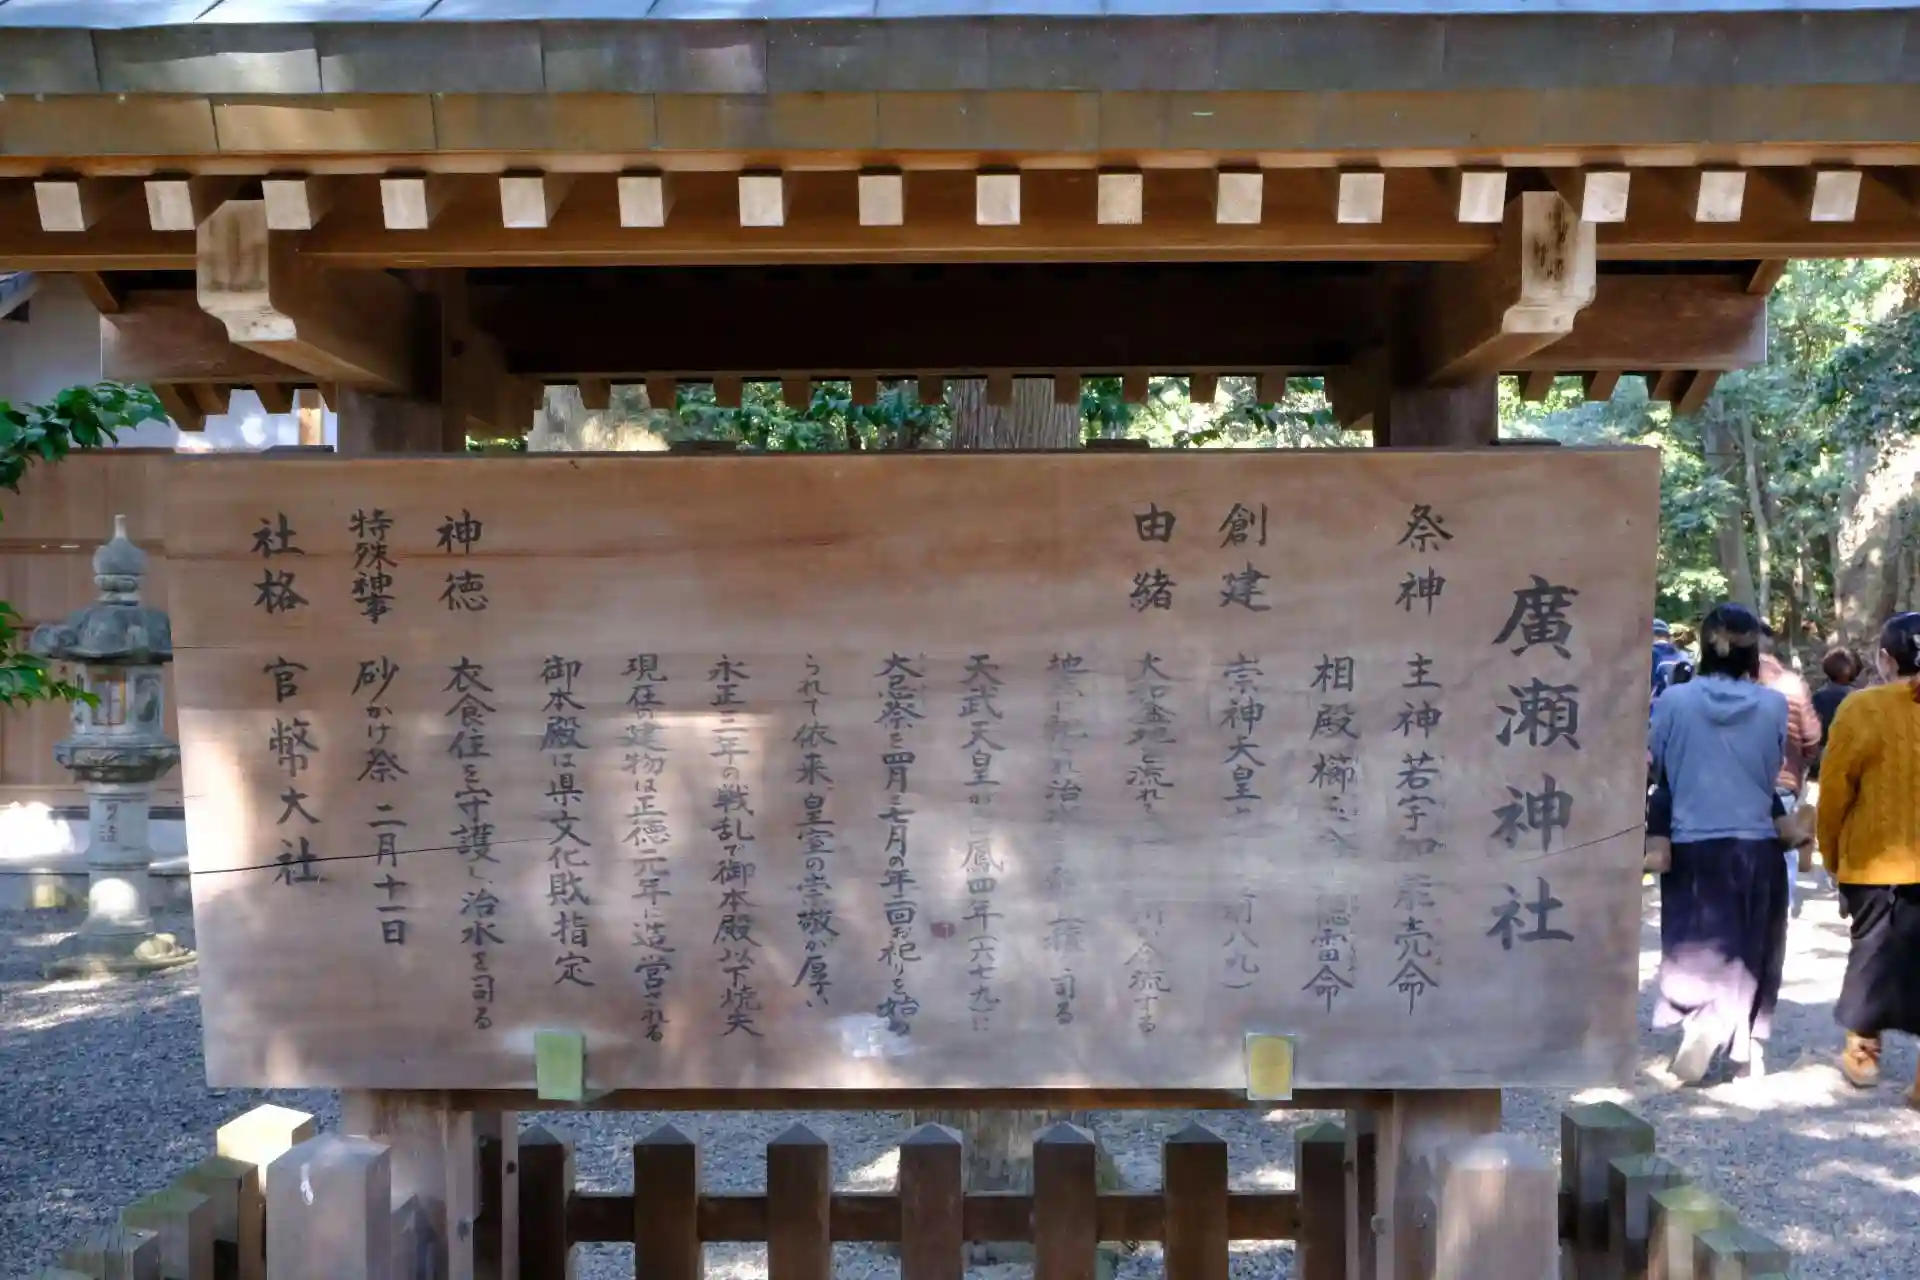 廣瀬神社
祭神 主神若宇加能売命
相殿櫛玉命 穂雷命
創建 崇神天皇 前八九)
由緒 大和盆地を流れる 川が合流する
地 治水 司る
天武天皇 白鳳四年(六七九)に
大忌祭を四月と七月の年二回お祀りを始め
られて依来、皇室の崇敬が厚い
永正三年の戦乱で御本殿以下焼失
現在の建物は正徳元年に造営される
御本殿は県文化財指定
神徳 衣食住を守護し、治水を司る
特殊神事 砂かけ祭 二月十一日
社格 官幣大社